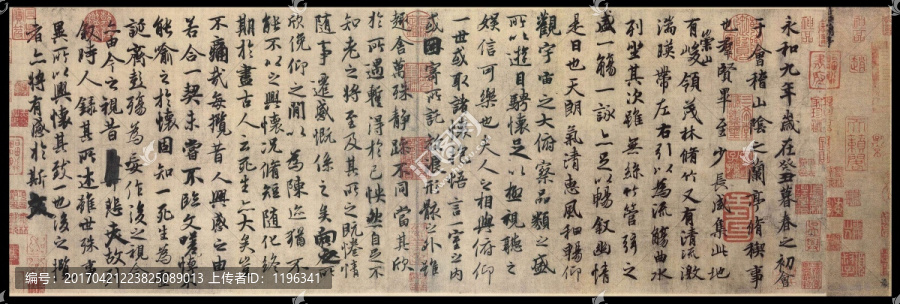 永和九年歲在癸丑暮春之初會
于會稽山陰之蘭亭脩稧事
也羣賢畢至少長咸集此地
有崇山峻領茂林脩竹又有清流激
湍暎帶左右引以為流觴曲水
列坐其次雖無絲竹管弦之
盛一觴一詠亦足以暢敘幽情
是日也天朗氣清惠風和暢仰
觀宇宙之大俯察品類之盛
所以遊目騁懷足以極視聽之
娛信可樂也夫人之相與俯仰
一世或取諸懷抱悟言一室之內
或因寄所託放浪形骸之外雖
趣舍萬殊靜躁不同當其欣
於所遇蹔得於己怏然自足不
知老之將至及其所之既惓情
隨事遷感慨係之矣向之所
欣俛仰之閒以為陳迹猶不
能不以之興懷況脩短隨化終
期於盡古人云死生亦大矣豈
不痛哉每攬昔人興感之由
若合一契未嘗不臨文嗟悼不
能喻之於懷固知一死生為虛
誕齊彭殤為妄作後之視今
亦由今之視昔悲夫故列
敘時人錄其所述雖世殊事
異所以興懷其致一也後之攬
者亦將有感於斯文
编号:20170421223825089013 上传者ID:1196341